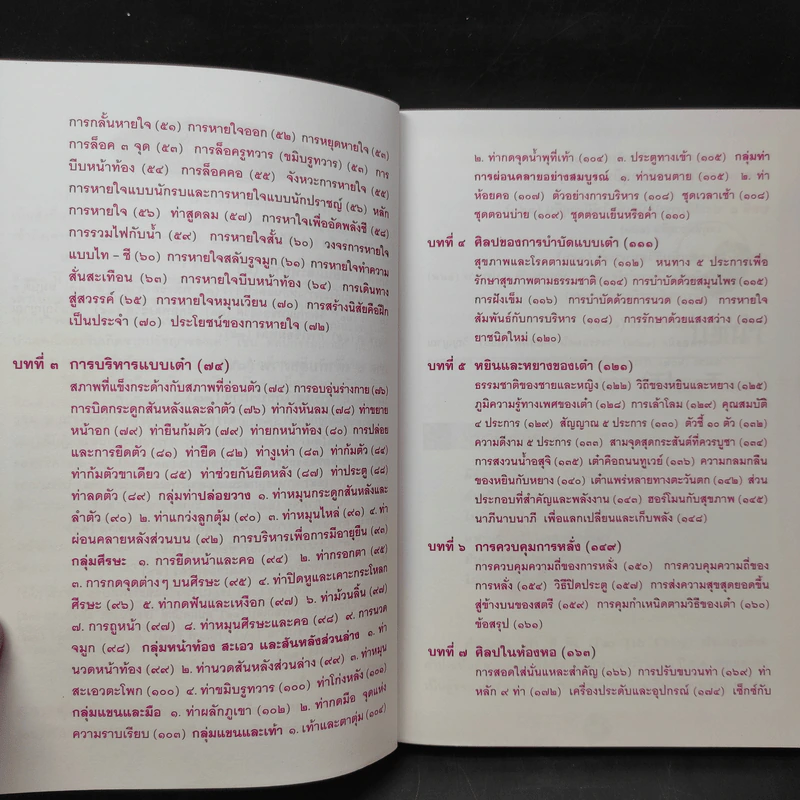 การกลั้นหายใจ (๕๑) การหายใจออก (๕๒) การหยุดหายใจ (๕๓)
การล็อค ๓ จุด (๕๓) การล็อครูทวาร (ขมิบรูทวาร) (๕๓) การ
บีบหน้าท้อง (๕๔) การล็อคคอ (๕๕) จังหวะการหายใจ (๕๕)
การหายใจแบบนักรบและการหายใจแบบนักปราชญ์ (๕๖) หลัก
การหายใจ (๕๖) ท่าสูดลม (๕๗) การหาใจเพื่ออัดพลังชี่ (๕๘)
การรวมไฟกับน้ำ (๕๙) การหายใจสั้น (๖๐) วงจรการหายใจ
แบบไท - ชี (๖๐) การหายใจสลับรูจมูก (๖๑) การหายใจทำความ
สั่นสะเทือน (๖๓) การหายใจบีบหน้าท้อง (๖๔) การเดินทาง
สู่สวรรค์ (๖๕) การหายใจหมุนเวียน (๗๐) การสร้างนิสัยคือฝึก
เป็นประจำ (๗๐) ประโยชน์ของการหายใจ (๗๒)
บทที่ ๓ การบริหารแบบเต๋า (๗๔)
สภาพที่แข็งกระด้างกับสภาพที่อ่อนตัว (๗๔) การอบอุ่นร่างกาย (๗๖)
การบิดกระดูกสันหลังและลำตัว (๗๖) ท่ากังหันลม (๗๘) ท่าขยาย
หน้าอก (๗๙) ท่ายืนก้มตัว (๗๙) ท่ายกหน้าท้อง (๘๐) การปล่อย
และการยืดตัว (๘๑) ท่ายืด (๘๒) ท่างูเห่า (๘๓) ท่าก้มตัว (๘๔)
ท่าก้มตัวขาเดียว (๘๕) ท่าช่วยกันยืดหลัง (๘๗) ท่าประตู (๘๘)
ท่าลดตัว (๘๙) กลุ่มท่าปล่อยวาง ๑. ท่าหมุนกระดูกสันหลังและ
ลำตัว (๙๐) ๒. ท่าแกว่งลูกตุ้ม (๙๐) ๓. ท่าหมุนไหล่ (๙๑) ๔. ท่า
ผ่อนคลายหลังส่วนบน (๙๒) การบริหารเพื่อการมีอายุยืน (๙๓)
กลุ่มศีรษะ ๑. การยืดหน้าและคอ (๙๔) ๒. ท่ากรอกตา (๙๕)
๓. การกดจุดต่างๆ บนศีรษะ (๙๕) ๔. ท่าปิดหูและเคาะกระโหลก
ศีรษะ (๙๖) ๕. ท่ากดฟันและเหงือก (๙๗) ๖. ท่าม้วนลิ้น (๙๗)
๗. การถูหน้า (๙๗) ๘. ท่าหมุนศีรษะและคอ (๙๘) ๙. การนวด
จมูก (๙๘) กลุ่มหน้าท้อง สะเอว และสันหลังส่วนล่าง ๑. ท่า
นวดหน้าท้อง (๙๙) ๒. ท่านวดสันหลังส่วนล่าง (๙๙) ๓. ท่าหมุน
สะเอวตะโพก (๑๐๐) ๔. ท่าขมิบรูทวาร (๑๐๐) ท่าโก่งหลัง (๑๐๑)
กลุ่มแขนและมือ ๑. ท่าผลักภูเขา (๑๐๒) ๒. ท่ากดมือ จุดแห่ง
ความราบเรียบ (๑๐๓) กลุ่มแขนและเท้า ๑. เท้าและตาตุ่ม (๑๐๔)
๒. ท่ากดจุดน้ำพุที่เท้า (๑๐๔) ๓. ประตูทางเข้า (๑๐๕) กลุ่มท่า
การผ่อนคลายอย่างสมบูรณ์ ๑. ท่านอนตาย (๑๐๕) ๒. ท่า
ห้อยคอ (๑๐๗) ตัวอย่างการบริหาร (๑๐๘) ชุดเวลาเช้า (๑๐๘)
ชุดตอนบ่าย (๑๐๙) ชุดตอนเย็นหรือค่ำ (๑๑๐)
บทที่ ๔ ศิลปของการบำบัดแบบเต๋า (๑๑๑)
สุขภาพและโรคตามแนวเต๋า (๑๑๒) หนทาง ๕ ประการเพื่อ
รักษาสุขภาพตามธรรมชาติ (๑๑๔) การบำบัดด้วยสมุนไพร (๑๑๕)
การฝังเข็ม (๑๑๖) การบำบัดด้วยการนวด (๑๑๗) การหายใจ
สัมพันธ์กับการบริหาร (๑๑๘) การรักษาด้วยแสงสว่าง (๑๑๘)
ยาชนิดใหม่ (๑๒๐)
บทที่ ๕ หยินและหยางของเต๋า (๑๒๑)
ธรรมชาติของชายและหญิง (๑๒๒) วิถีของหยินและหยาง (๑๒๕)
ภูมิความรู้ทางเพศของเต๋า (๑๒๘) การเล้าโลม (๑๒๙) คุณสมบัติ
๔ ประการ (๑๒๙) สัญญาณ ๕ ประการ (๑๓๐) ตัวชี้ ๑๐ ตัว (๑๓๒)
ความดีงาม ๕ ประการ (๑๓๓) สามจุดสุดกระสันต์ที่ควรบูชา (๑๓๔)
การสงวนน้ำอสุจิ (๑๓๕) เต๋าคือถนนทูเวย์ (๑๓๖) ความกลมกลืน
ของหยินกับหยาง (๑๔๐) เต๋าแพร่หลายทางตะวันตก (๑๔๒) ส่วน
ประกอบที่สำคัญและพลังงาน (๑๔๓) ฮอร์โมนกับสุขภาพ (๑๔๕)
นาภีนาบนาภี เพื่อแลกเปลี่ยนและเก็บพลัง (๑๔๘)
บทที่ ๖ การควบคุมการหลั่ง (๑๔๙)
การควบคุมความถี่ของการหลั่ง (๑๕๐) การควบคุมความถี่ของ
การหลั่ง (๑๕๔) วิธีปิดประตู (๑๕๗) การส่งความสุขสุดยอดขึ้น
สู่ข้างบนของสตรี (๑๕๙) การคุมกำเนิดตามวิธีของเต๋า (๑๖๐)
ข้อสรุป (๑๖๑)
บทที่ ๗ ศิลปในห้องหอ (๑๖๓)
การสอดใส่นั่นแหละสำคัญ (๑๖๖) การปรับขบวนท่า (๑๖๙) ท่า
หลัก ๙ ท่า (๑๗๒) เครื่องประดับและอุปกรณ์ (๑๗๔) เซ็กซ์กับ